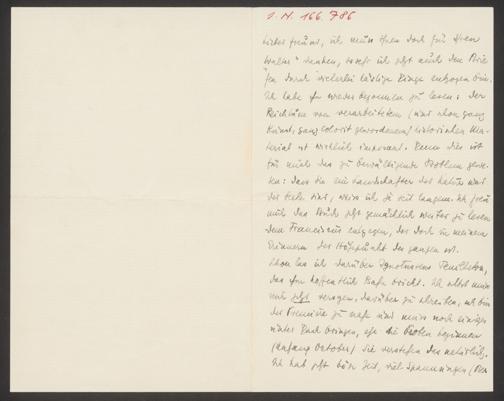 I. N. 166.786
Lieber Freund, ich muss Ihnen doch für Ihren
danken, sosehr ich jetzt auch den
durch vielerlei lästige Dinge entzogen bin.
Ich habe ihn wieder begonnen zu lesen: der
Reichtum von verarbeitetem (und schon ganz
Kunst, ganz Colorit gewordenem) historischen Ma-
terial ist wirklich imposant. Denn dies ist
für mich das zu bewältigende Problem gewe-
sen: dass Sie ein Landschafter der Natur und
der Seele sind, weiss ich ja seit langem. Ich freu
mich das Buch jetzt gemächlich weiter zu lesen
dem Franciscus entgegen, der doch in meinem
Erinnern der Höhepunkt des ganzen ist.
Schon las ich darüber Feuilleton,
das Ihn hoffentlich Bahn bricht. Ich selbst muss
mirs jetzt versagen, darüber zu schreiben, ich bin
der Première zu nah und muss noch einiges
unter Dach bringen, ehe die Proben beginnen
(Anfang October) Sie verstehen das natürlich.
Ich hab jetzt böse Zeit, viel Spannungen